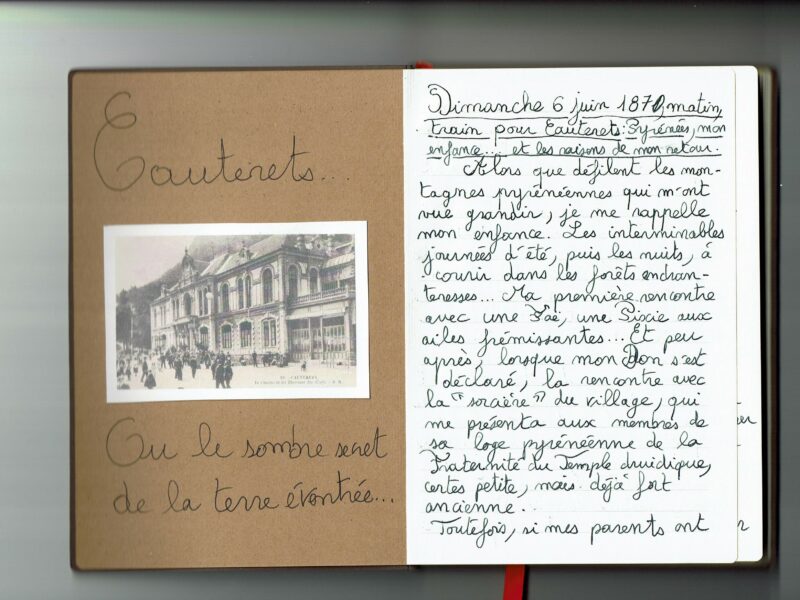 Cauterets...
CAUTERETS
Ou le sombre secret
de la terre éventrée...
Dimanche 6 juin 1870, matin,
train pour Cauterets: Pyrénées, mon
enfance... et les raisons de mon retour.
Alors que défilent les mon-
tagnes pyrénéennes qui m'ont
vue grandir, je me rappelle
mon enfance. Les interminables
journées d'été, puis les nuits, à
courir dans les forêts enchan-
teresses... Ma première rencontre
avec une Faë, une Pixie aux
ailes frémissantes... Et peu
après, lorsque mon Don s'est
déclaré, la rencontre avec
la "sorcière" du village, qui
me présenta aux membres de
sa loge pyrénéenne de la
Fraternité du Temple druidique,
certes petite, mais déjà fort
ancienne..
Toutefois, si mes parents ont